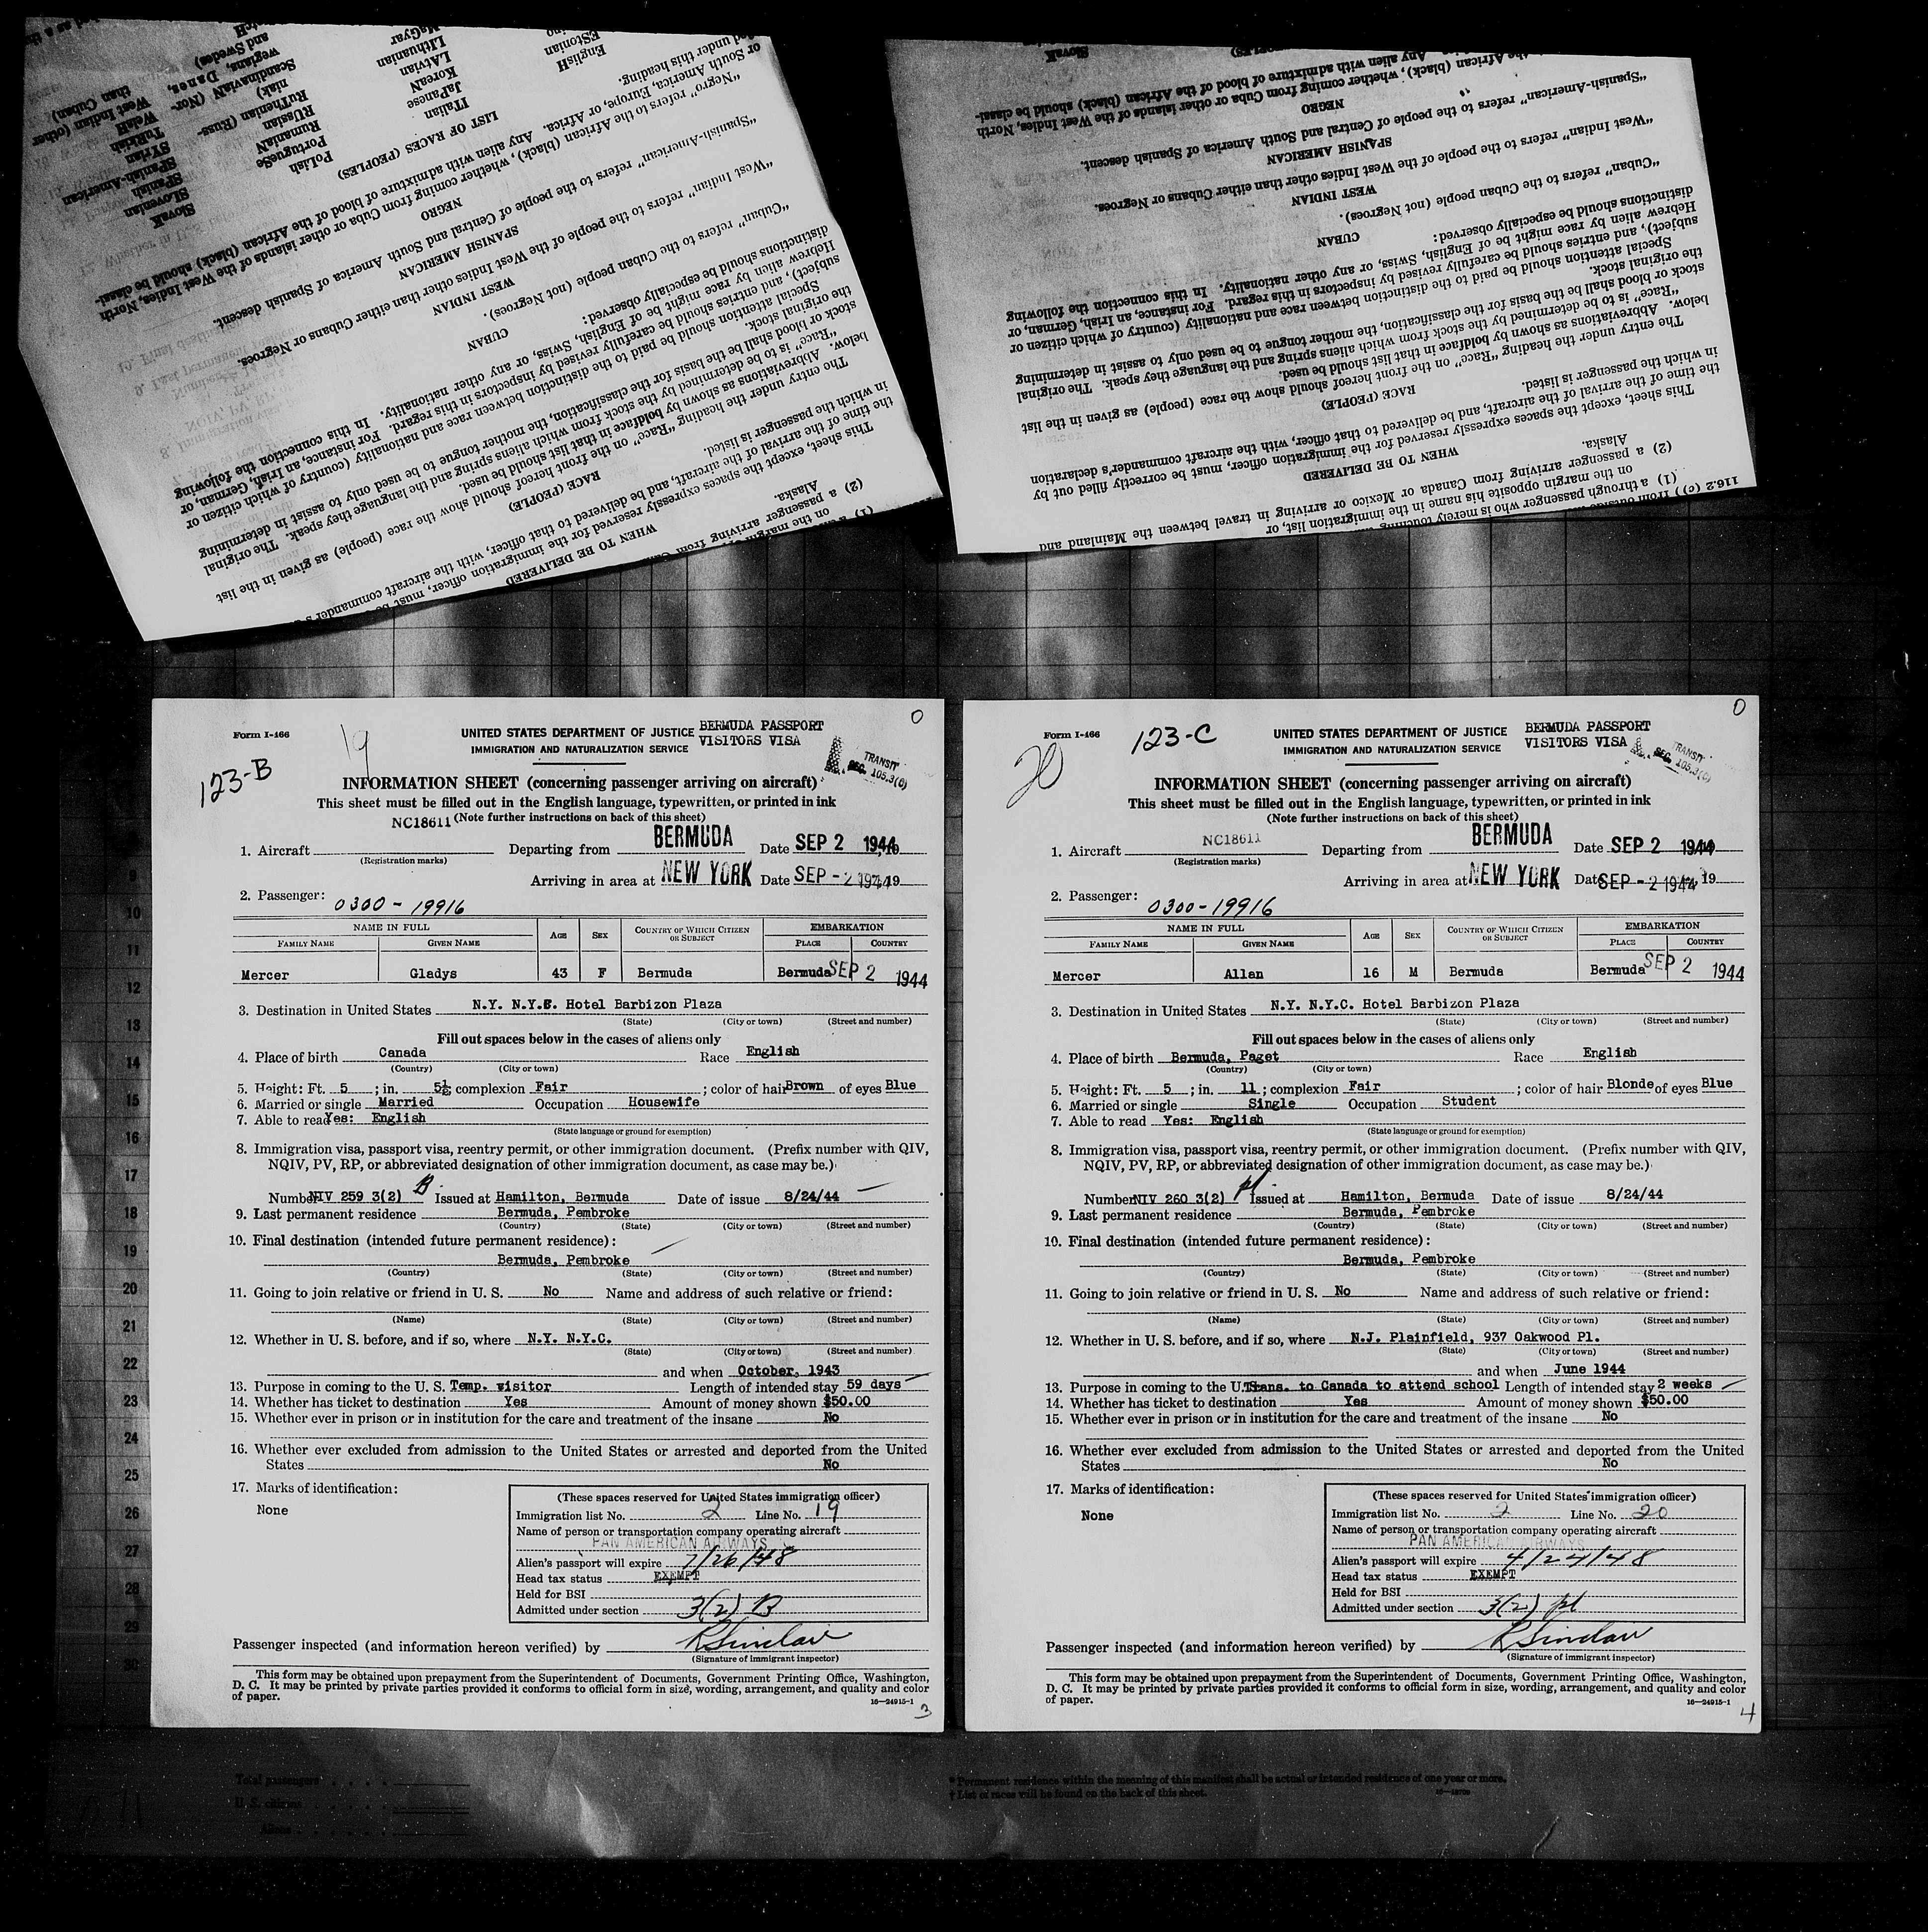 Slovak
SLovenian
SPanish
SPanish-American
SYrian
TuRkish
WelsH
West Indian (other
than Cuban)
PoLish
PortugueSe
Rumanian
RUssian
RuThenian (Russ-
niak)
ScandinaviaN (Nor-
wegians, Danes,
and Swedes)
Italian
JaPanese
KoreaN
LAtvian
LIthuanian
MaGyar
EnglisH
EStonian
LIST OF RACES (PEOPLES)
"Negro" refers to the African (black), whether coming from Cuba or other islands of the West Indies, North
or South America, Europe, or Africa. Any alien with admixture of blood of the African (black) should be classi-
fied under this heading.
NEGRO
"Spanish-American" refers to the people of Central and South America of Spanish descent.
SPANISH AMERICAN
"West Indian" refers to the people of the West Indies other than either Cubans or Negroes.
WEST INDIAN
"Cuban" refers to the Cuban people (not Negroes).
CUBAN
distinctions should be especially observed:
Hebrew alien by race might be of English, Swiss, or any other nationality. In this connection the following
subject), and entries should be carefully revised by inspectors in this regard. For instance, an Irish, German, or
Special attention should be paid to the distinction between race and nationality (country of which citizen or
the original stock.
stock or blood shall be the basis for the classification, the mother tongue to be used only to assist in determining
"Race" is to be determined by the stock from which aliens spring and the language they speak. The original
below. Abbreviations as shown by boldface in that list should be used.
The entry under the heading "Race" on the front hereof should show the race (people) as given in the list
RACE (PEOPLE)
in which the passenger is listed.
the time of the arrival of the aircraft, and be delivered to that officer, with the aircraft commander's
This sheet, except the spaces expressly reserved for the immigration officer, must be
WHEN TO BE DELIVERED
Alaska.
(2) a passenger arriving from
on the margin
SlovaK
African (black), whether coming from Cuba or other islands of the West Indies, North
Any alien with admixture of blood of the African (black) should be classi-
NEGRO
"Spanish-American" refers to the people of Central and South America of Spanish descent.
SPANISH AMERICAN
"West Indian" refers to the people of the West Indies other than either Cubans or Negroes.
WEST INDIAN
"Cuban" refers to the Cuban people (not Negroes).
CUBAN
distinctions should be especially observed:
Hebrew alien by race might be of English, Swiss, or any other nationality. In this connection the following
subject), and entries should be carefully revised by inspectors in this regard. For instance, an Irish, German, or
Special attention should be paid to the distinction between race and nationality (country of which citizen or
the original stock.
stock or blood shall be the basis for the classification, the mother tongue to be used only to assist in determining
"Race" is to be determined by the stock from which aliens spring and the language they speak. The original
below. Abbreviations as shown by boldface in that list should be used.
The entry under the heading "Race" on the front hereof should show the race (people) as given in the list
RACE (PEOPLE)
in which the passenger is listed.
the time of the arrival of the aircraft, and be delivered to that officer, with the aircraft commander's declaration
This sheet, except the spaces expressly reserved for the immigration officer, must be correctly filled out by
WHEN TO BE DELIVERED
Alaska.
(2) a passenger arriving from Canada or Mexico or arriving in travel between the Mainland and
on the margin opposite his name in the immigration list, or
(1) a through passenger who is merely touching
116.2 (c)) from outside
Form I-466
19
UNITED STATES DEPARTMENT OF JUSTICE
IMMIGRATION AND NATURALIZATION SERVICE
BERMUDA PASSPORT
VISITORS VISA
0
TRANSIT
SEC. 105.3(6)
123-B
INFORMATION SHEET (concerning passenger arriving on aircraft)
This sheet must be filled out in the English language, typewritten, or printed in ink
NC18611 (Note further instructions on back of this sheet)
1. Aircraft Departing from BERMUDA Date SEP 2 1944
(Registration marks)
Arriving in area at NEW YORK Date SEP - 2 1944 19
2. Passenger: 0300 - 19916
NAME IN FULL AGE SEX COUNTRY OF WHICH CITIZEN OR SUBJECT EMBARKATION
FAMILY NAME GIVEN NAME PLACE COUNTRY
Mercer Gladys 43 F Bermuda Bermuda SEP 2 1944
3. Destination in United States N.Y. N.Y.C. Hotel Barbizon Plaza
(State) (City or town) (Street and number)
Fill out spaces below in the cases of aliens only
4. Place of birth Canada Race English
(Country) (City or town)
5. Height: Ft. 5 ; in. 5½; complexion Fair ; color of hair Brown of eyes Blue
6. Married or single Married Occupation Housewife
7. Able to read Yes: English
(State language or ground for exemption)
8. Immigration visa, passport visa, reentry permit, or other immigration document. (Prefix number with QIV,
NQIV, PV, RP, or abbreviated designation of other immigration document, as case may be.)
Number NIV 259 3(2) B Issued at Hamilton, Bermuda Date of issue 8/24/44
9. Last permanent residence Bermuda, Pembroke
(Country) (State) (City or town) (Street and number)
10. Final destination (intended future permanent residence):
Bermuda, Pembroke
(Country) (State) (City or town) (Street and number)
11. Going to join relative or friend in U. S. No Name and address of such relative or friend:
(Name) (State) (City or town) (Street and number)
12. Whether in U. S. before, and if so, where N.Y. N.Y.C.
(State) (City or town) (Street and number)
and when October, 1943
13. Purpose in coming to the U. S. Temp. visitor Length of intended stay 59 days
14. Whether has ticket to destination Yes Amount of money shown $50.00
15. Whether ever in prison or in institution for the care and treatment of the insane No
16. Whether ever excluded from admission to the United States or arrested and deported from the United
States No
17. Marks of identification:
None
(These spaces reserved for United States immigration officer)
Immigration list No. 2 Line No. 19
Name of person or transportation company operating aircraft
PAN AMERICAN AIRWAYS
Alien's passport will expire 7/26/48
Head tax status EXEMPT
Held for BSI
Admitted under section 3(2) B
Passenger inspected (and information hereon verified) by RSinclair
(Signature of immigrant inspector)
This form may be obtained upon prepayment from the Superintendent of Documents, Government Printing Office, Washington,
D. C. It may be printed by private parties provided it conforms to official form in size, wording, arrangement, and quality and color
of paper.
16—24915-1
3
Form I-466
123-C
20
UNITED STATES DEPARTMENT OF JUSTICE
IMMIGRATION AND NATURALIZATION SERVICE
BERMUDA PASSPORT
VISITORS VISA
0
TRANSIT
SEC. 105.3(6)
INFORMATION SHEET (concerning passenger arriving on aircraft)
This sheet must be filled out in the English language, typewritten, or printed in ink
(Note further instructions on back of this sheet)
1. Aircraft NC18611 Departing from BERMUDA Date SEP 2 1944
(Registration marks)
Arriving in area at NEW YORK Date SEP - 2 1944 19
2. Passenger: 0300-19916
NAME IN FULL AGE SEX COUNTRY OF WHICH CITIZEN OR SUBJECT EMBARKATION
FAMILY NAME GIVEN NAME PLACE COUNTRY
Mercer Allan 16 M Bermuda Bermuda SEP 2 1944
3. Destination in United States N.Y. N.Y.C. Hotel Barbizon Plaza
(State) (City or town) (Street and number)
Fill out spaces below in the cases of aliens only
4. Place of birth Bermuda, Paget Race English
(Country) (City or town)
5. Height: Ft. 5 ; in. 11 ; complexion Fair ; color of hair Blonde of eyes Blue
6. Married or single Single Occupation Student
7. Able to read Yes: English
(State language or ground for exemption)
8. Immigration visa, passport visa, reentry permit, or other immigration document. (Prefix number with QIV,
NQIV, PV, RP, or abbreviated designation of other immigration document, as case may be.)
Number NIV 260 3(2) pl Issued at Hamilton, Bermuda Date of issue 8/24/44
9. Last permanent residence Bermuda, Pembroke
(Country) (State) (City or town) (Street and number)
10. Final destination (intended future permanent residence):
Bermuda, Pembroke
(Country) (State) (City or town) (Street and number)
11. Going to join relative or friend in U. S. No Name and address of such relative or friend:
(Name) (State) (City or town) (Street and number)
12. Whether in U. S. before, and if so, where N.J. Plainfield, 937 Oakwood Pl.
(State) (City or town) (Street and number)
and when June 1944
13. Purpose in coming to the U.S. Trans. to Canada to attend school Length of intended stay 2 weeks
14. Whether has ticket to destination Yes Amount of money shown $50.00
15. Whether ever in prison or in institution for the care and treatment of the insane No
16. Whether ever excluded from admission to the United States or arrested and deported from the United
States No
17. Marks of identification:
None
(These spaces reserved for United States immigration officer)
Immigration list No. 2 Line No. 20
Name of person or transportation company operating aircraft
PAN AMERICAN AIRWAYS
Alien's passport will expire 4/24/48
Head tax status EXEMPT
Held for BSI
Admitted under section 3(2) pl
Passenger inspected (and information hereon verified) by RSinclair
(Signature of immigrant inspector)
This form may be obtained upon prepayment from the Superintendent of Documents, Government Printing Office, Washington,
D. C. It may be printed by private parties provided it conforms to official form in size, wording, arrangement, and quality and color
of paper.
16—24915-1
4
9
10
11
12
13
14
15
16
17
18
19
20
21
22
23
24
25
26
27
28
29
30
Total passengers
U. S. citizens
Aliens
* Permanent residence within the meaning of this manifest shall be actual or intended residence of one year or more.
† List of races will be found on the back of this sheet.